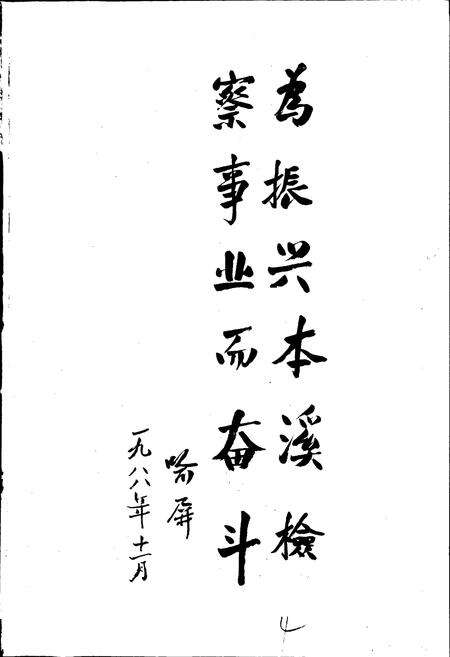 為振兴本溪檢
察事业而奋斗
喻屏
一九八八年十一月